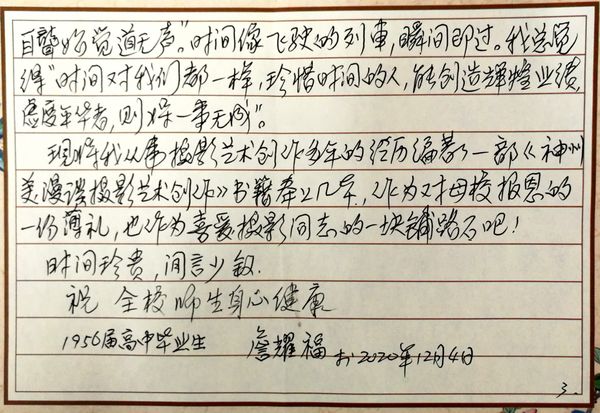 自聋始觉道无声”。时间像飞驶的列車，瞬间即过。我总觉
得“时间对我们都一样，珍惜时间的人，能创造辉煌业绩，
虚度年华者，则将一事无成”。
现将我从事摄影艺术创作多年的经历编著了一部《神州
美漫谈摄影艺术创作》书籍奉上几本，作为对母校报恩的
一份薄礼，也作为喜爱摄影同志的一块铺路石吧！
时间珍贵，闲言少叙.
祝 全校师生身心健康
1956届高中毕业生 詹耀福 于2020年12月4日
3.